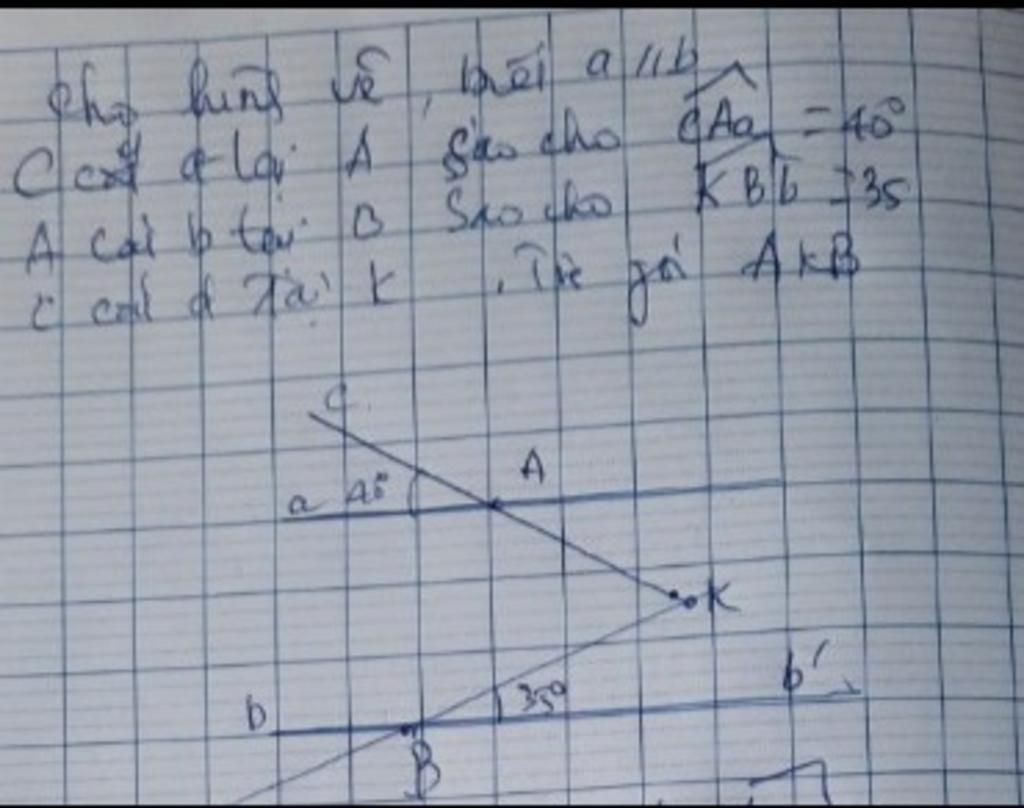 Cho hình vẽ, biết a // b
C cắt a tại A sao cho cAa = 40°
cắt b tại B sao cho KBb = 35
c cắt d tại K. góc AKB
c
A
a 40°
K
b'
35°
b
B